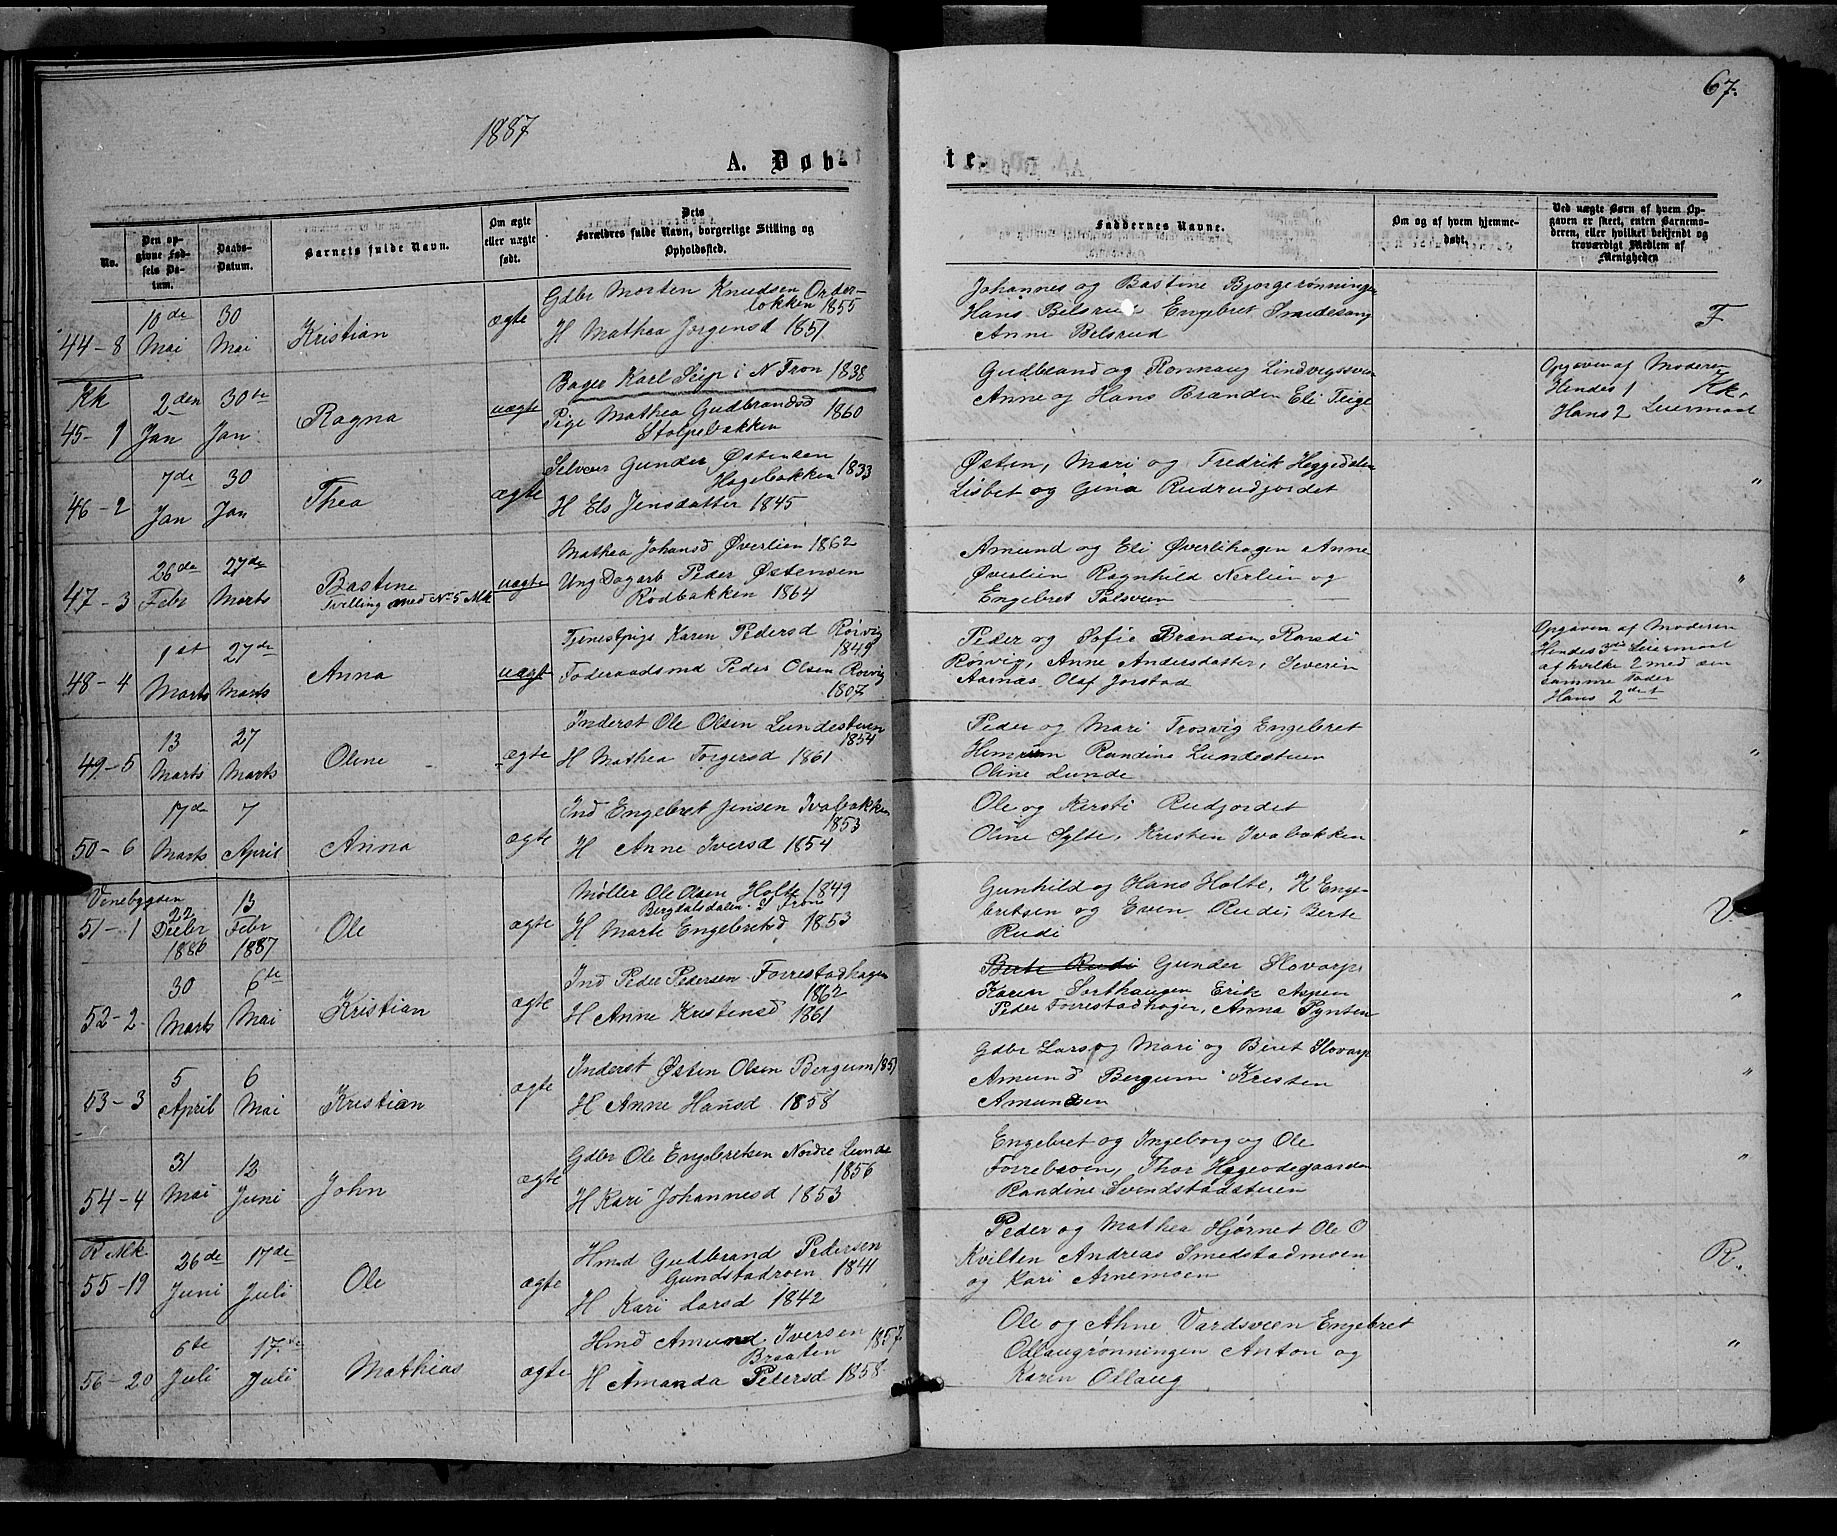 1887
67.
A. Døbte.
No.
Den opgivne Fødsels Datum.
Daabs-Datum.
Barnets fulde Navn.
Om ægte eller uægte født.
Dets Forældres fulde Navn, borgerlige Stilling og Opholdssted.
Faddernes Navne.
Om og af hvem hjemmedøbt.
Ved uægte Børn af hvem Opgaven er skeet, enten Barnemoderen, eller hvilket bekjendt og troværdigt Medlem af Menigheden
44-8 10de Mai 30 Mai Kristian ægte
Gdbr Morten Knudsen
løkken 1855
H Mathea Jørgensd 1851
Johannes og Bastine Bjørgerønningen
Hans Belsrud Engebret Smedesang
Anne Belsrud
F.
Kk
45-1 2den Jan 30te Jan. Ragna uægte
Bager Karl Seip i N Fron 1838
Pige Mathea Gudbrandsd 1860
Stolpebakken
Gudbrand og Rønnaug Lindvigsveen
Anne og Hans Brænden Eli Teige
Opgaven af Moderen
Hendes 1 Kk.
Hans 2 Leiermaal
46-2 7de Jan 30 Jan Thea ægte
Selveier Gunder Østensen
Hagebakken 1833
H Els Jensdatter 1845
Østen, Mari og Fredrik Heggedalen
Lisbet og Gina Rudrudjordet
"
47-3 26de Febr 27de Marts Bastine uægte
Tvilling med No 5 Mk
Mathea Johansd Øverlien 1862
Ung Dagarb Peder Østensen
Rødbakken 1864
Amund og Eli Øverlihagen Anne
Øverlien Ragnhild Nerlien og
Engebret Palsveen
"
48-4 1st Marts 27de Marts Anna uægte
Tjenestpige Karen Pedersd Rørvig
1849
Føderaadsmd Peder Olsen Rørvig
1807
Peder og Sofie Brænden, Randi
Rørvig, Anne Andersdatter, Severin
Aarnæs Olaf Jorstad
Opgaven af Moderen
Hendes 3de Leiermaal
af hvilke 2 med den
samme Fader
Hans 2det
49-5 13 Marts 27 Marts Oline ægte
Inderst Ole Olsen Lundestuen
1854
H Mathea Torgersd 1861
Peder og Mari Trosvig Engebret
Randine Lundestuen
Oline Lunde
"
50-6 17de Marts 7 April Anna ægte
Ind Engebret Jensen Ivabakken
1853
H Anne Iversd 1854
Ole og Kersti Rudjordet
Oline Sylte, Kristen Ivabakken
"
Venebygden
51-1 22 Decbr 1886 13 Febr 1887 Ole ægte
Møller Ole Olsen Holte 1849
Bergdalsdalen. S Fron
H Marte Engebretsd 1853
Gunhild og Hans Holte, K Enge-
bretsen og Even Rudi, Berte
Rudi
V.
52-2. 30 Marts 6te Mai Kristian ægte
Ind Peder Pedersen Forrestadhagen
1862
H Anne Kristensd 1861
Berte Rudi Gunder Hovarp
Karen Sorthaugen Erik Aspen
Peder Forrestadhagen, Anna Pynten
"
53-3 5 April 6 Mai Kristian ægte
Inderst Østen Olsen Bergum 1851
H Anne Hansd 1858
Gdbr Lars og Mari og Beret Hovarp
Amund Bergum Kristen
Amundsen
"
54-4 31 Mai 12 Juni John ægte
Gdbr Ole Engebretsen Nordre Lunde
1856
H Kari Johannesd 1853
Engebret og Ingeborg og Ole
Forrebøen, Thor Høgeodegaarden
Randine Svendstadstuen
"
R Mk.
55-19 26de Juni 17de Juli Ole ægte
Hmd Gudbrand Pedersen
Gundstadroen 1841
H Kari Larsd 1842
Peder og Mathea Hjørnet Ole O
Kvilten Andreas Smedstadmoen
og Kari Arnemoen
R.
56-20 6te Juli 17de Juli Mathias ægte
Hmd Amund Iversen 1857
Braaten
H Amanda Pedersd 1858
Ole og Ahne Vardsveen Engebret
Odlaugrønningen Anton og
Karen Ollaug
"